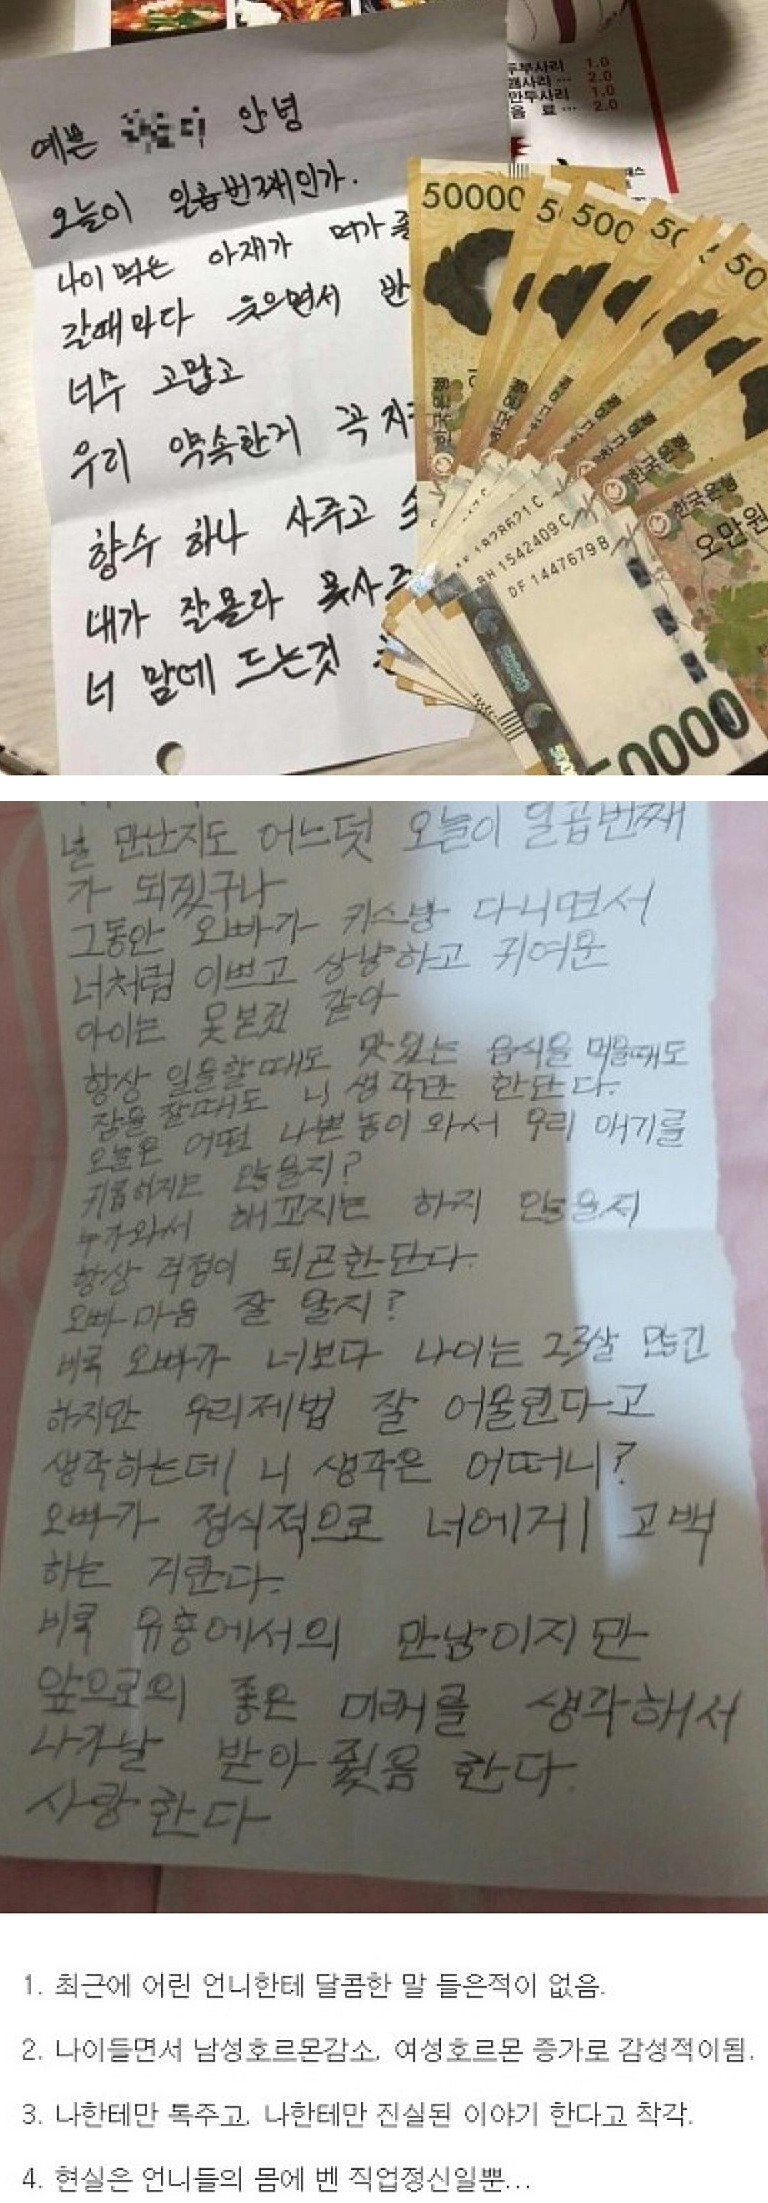 두부사리 1.0
햄사리 ... 2.0
만두사리 1.0
음 료 ... 2.0
예쁜 안녕
오늘이 일곱번째인가.
나이 먹은 아재가 뭐가 좋
갈때마다 웃으면서 반
너무 고맙고
우리 약속한거 꼭 지
향수 하나 사주고
내가 잘몰라 못사주
너 맘에 드는것
50000
500
50
한국은행
한국은행
오만원
BH 1542409 C
DF 1447679 B
50000
널 만난지도 어느덧 오늘이 일곱번째
가 되겠구나
그동안 오빠가 키스방 다니면서
너처럼 이쁘고 상냥하고 귀여운
아이는 못본것 같아
항상 일을할때도 맛있는 음식을 먹을때도
잠을 잘때도 니 생각만 한단다.
오늘은 어떤 나쁜놈이 와서 우리 애기를
귀롭히지는 않을지?
누가와서 해꼬지는 하지 않을지
항상 걱정이 되곤한단다.
오빠 마음 잘 알지?
비록 오빠가 너보다 나이는 23살 많긴
하지만 우리제법 잘 어울린다고
생각하는데 니 생각은 어떠니?
오빠가 정식적으로 너에게 고백
하는 거란다.
비록 유흥에서의 만남이지만
앞으로의 좋은 미래를 생각해서
나가날 받아줬음 한다.
사랑한다
1. 최근에 어린 언니한테 달콤한 말 들은적이 없음.
2. 나이들면서 남성호르몬감소, 여성호르몬 증가로 감성적이됨.
3. 나한테만 톡주고, 나한테만 진실된 이야기 한다고 착각.
4. 현실은 언니들의 몸에 벤 직업정신일뿐...